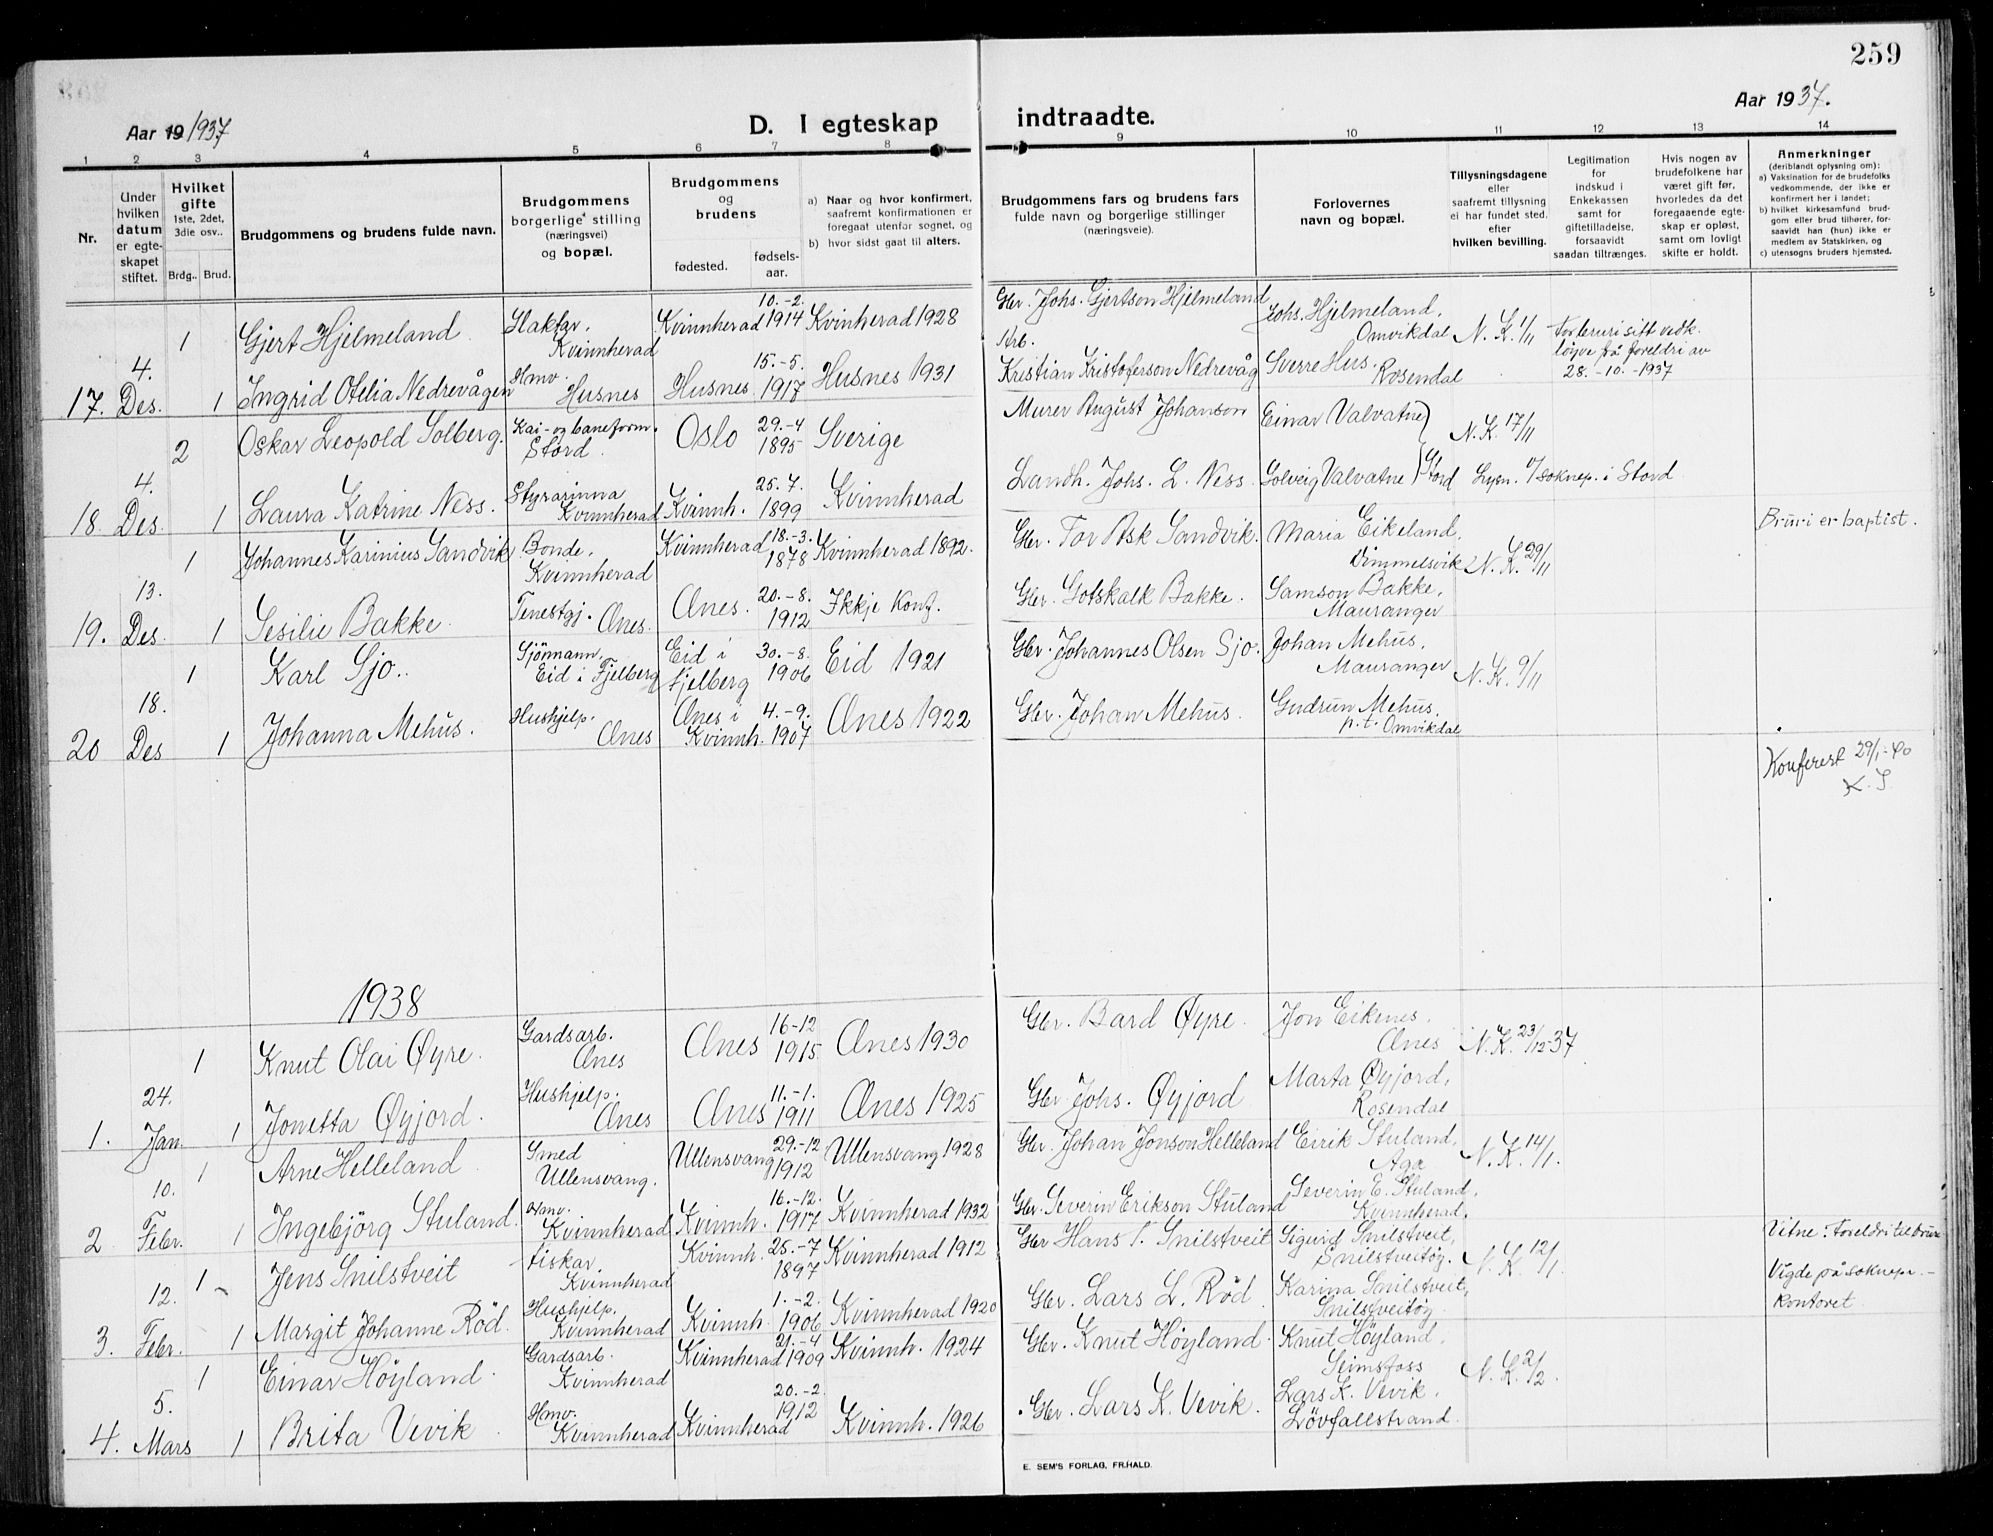 259
Aar 19 1937
D. I egteskap indtraadte.
Aar 1937.
1 2 3 4 5 6 7 8 9 10 11 12 13 14
Nr.
Under
hvilken
datum
er egte-
skapet
stiftet.
Hvilket
gifte
1ste, 2det,
3die osv..
Brdg.. Brud.
Brudgommens og brudens fulde navn.
Brudgommens
borgerlige stilling
(næringsvei)
og bopæl.
Brudgommens
og
brudens
fødested.
fødsels-
aar.
a) Naar og hvor konfirmert,
saafremt konfirmationen er
foregaat utenfor sognet, og
b) hvor sidst gaat til alters.
Brudgommens fars og brudens fars
fulde navn og borgerlige stillinger
(næringsveie).
Forlovernes
navn og bopæl.
Tillysningsdagene
eller
saafremt tillysning
ei har fundet sted.
efter
hvilken bevilling.
Legitimation
for
indskud i
Enkekassen
samt for
giftetilladelse,
forsaavidt
saadan tiltrænges.
Hvis nogen av
brudefolkene har
været gift før,
hvorledes da det
foregaaende egte-
skap er opløst,
samt om lovligt
skifte er holdt.
Anmerkninger
(deriblandt oplysning om):
a) Vaksination for de brudefolks
vedkommende, der ikke er
konfirmert her i landet;
b) hvilket kirkesamfund brud-
gom eller brud tilhører, for-
saavidt han (hun) ikke er
medlem av Statskirken, og
c) utensogns bruders hjemsted.
1 Gjert Hjelmeland Slaktar. Kvinnherad Kvinnherad 10.-2. 1914 Kvinherad 1928 Gbr. Johs. Gjertson Hjelmeland Johs. Hjelmeland, Omvikdal N. K. 1/11 Torleruri sitt vedk. løyve frå foreldri av 28.-10.-1937
17. 4. Des. 1 Ingrid Otelia Nedrevågen Hmv. Husnes Husnes 15.-5. 1917 Husnes 1931 Arb. Kristian Kristoferson Nedrevåg Sverre Hus. Rosendal
2 Oskar Leopold Solberg. Kai- og baneform. Stord. Oslo 29.-4 1895 Sverige Murer August Johanson Einar Valvatne N. K. 17/11
18. 4. Des. 1 Laura Katrine Ness. Styrarinna Kvinnherad Kvinnh. 25.-7. 1899 Kvinnherad Landh. Johs. L. Ness. Solveig Valvatne Stord Lysn. soknep. i Stord Bruri er baptist.
1 Johannes Karinius Sandvik Bonde. Kvinnherad Kvinnherad 18.-3. 1878 Kvinnherad 1892. Gbr. Tor Ask Sandvik. Maria Eikeland, Dimmelsvik N. K. 29/11
19. 13. Des. 1 Sesilie Bakke. Tenestgj. Ænes. Ænes. 20.-8. 1912 Ikkje konf. Gbr. Gotskalk Bakke. Samson Bakke, Mauranger
1 Karl Sjo.. Sjømann. Eid i Fjelberg Eid i Fjelberg 30.-8. 1906 Eid 1921 Gbr. Johannes Olsen Sjo. Johan Mehus, Mauranger N. K. 9/11
20 18. Des 1 Johanna Mehus. Hushjelp. Ænes Ænes i Kvinnh. 4.-9. 1907 Ænes 1922 Gbr. Johan Mehus. Gudrun Mehus, p.t. Omvikdal
Konferert 29/1-40
K. S.
1938
1 Knut Olai Øyre. Gardsarb. Ænes Ænes 16-12 1915 Ænes 1930 Gbr. Bard Øyre. Jon Eikenes. Ænes N. K. 23/12-37
1. 24. Jan. 1 Jonetta Øyjord. Hushjelp. Ænes Ænes 11.-1. 1911 Ænes 1925 Gbr. Johs. Øyjord Marta Øyjord, Rosendal
1 Arne Helleland Smed Ullensvang. Ullensvang 29.-12 1912 Ullensvang 1928 Gbr. Johan Jonson Helleland Eirik Stuland, Aga N. K. 14/1.
2 10. Febr. 1 Ingebjörg Stuland. Hmv. Kvinnherad Kvinnh. 16.-12. 1917 Kvinnherad 1932 Gbr. Severin Erikson Stuland Severin E. Stuland, Kvinnherad. Vitne: Foreldri til brura
1 Jens Snilstveit Fiskar. Kvinnherad Kvinnh. 25.-7 1897 Kvinnherad 1912 Gbr Hans T. Snilstveit Sigurd Snilstveit, Snilstveitøy. N. K. 12/1. Vigde på soknepr.-kontoret.
3. 12. Febr. 1 Margit Johanne Röd. Hushjelp. Kvinnherad Kvinnh. 1.-2. 1906 Kvinnherad 1920 Gbr. Lars L. Röd Karina Snilstveit, Snilstveitøy.
1 Einar Höyland. Gardsarb. Kvinnherad Kvinnherad 21.-4 1909 Kvinnh. 1924 Gbr. Knut Höyland. Knut Höyland, Seimsfoss N. K. 2/2.
4. 5. Mars 1 Brita Vevik Hmv. Kvinnherad Kvinnherad 20.-2. 1912 Kvinnh. 1926 Gbr. Lars K. Vevik. Lars K. Vevik. Lövfallstrand.
E. SEM'S FORLAG, FR.HALD.